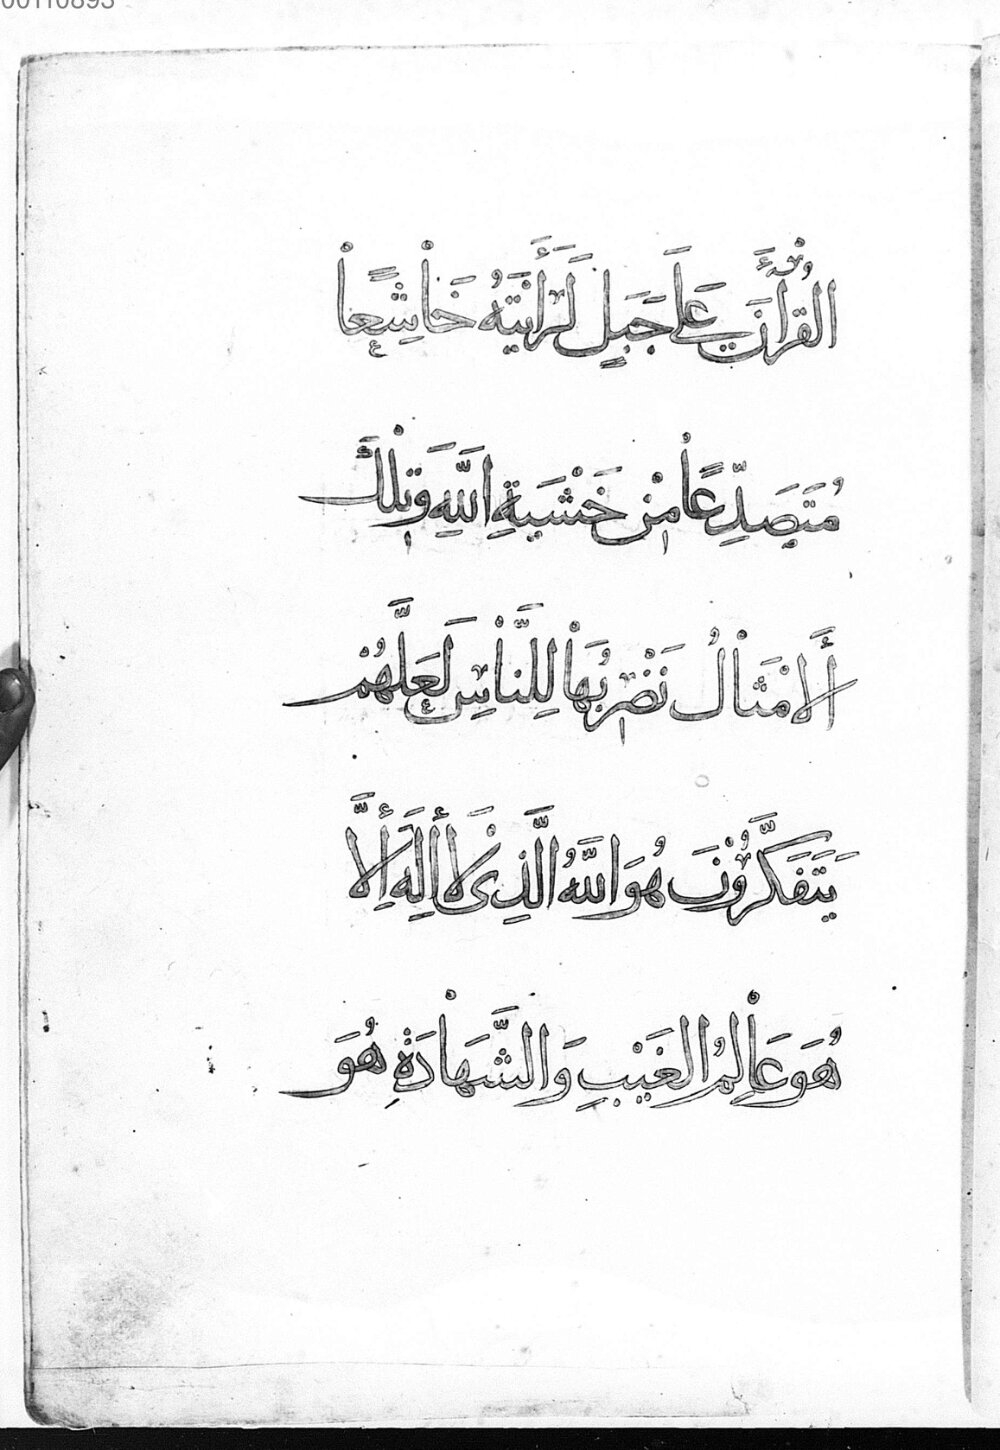 00110893
الْقُرْأَنَ عَلَى جَبَلٍ لَرَأَيْتَهُ خَاشِعًا
مُتَصَدِّعًا مِنْ خَشْيَةِ اللَّهِ وَتِلْكَ
أَلْامْثَالُ نَضْرِبُهَا لِلنَّاسِ لَعَلَّهُمْ
يَتَفَكَّرُوْنَ هُوَ اللَّهُ الَّذِىْ لَا أِلَهَ أِلَّا
هُوَ عَالِمُ الْغَيْبِ وَالشَّهَادَةِ هُوَ